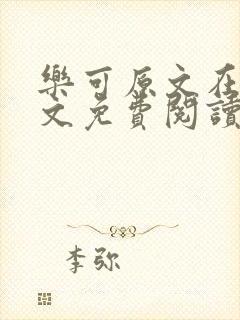 樂可原文在
文免費閱讀
李弥